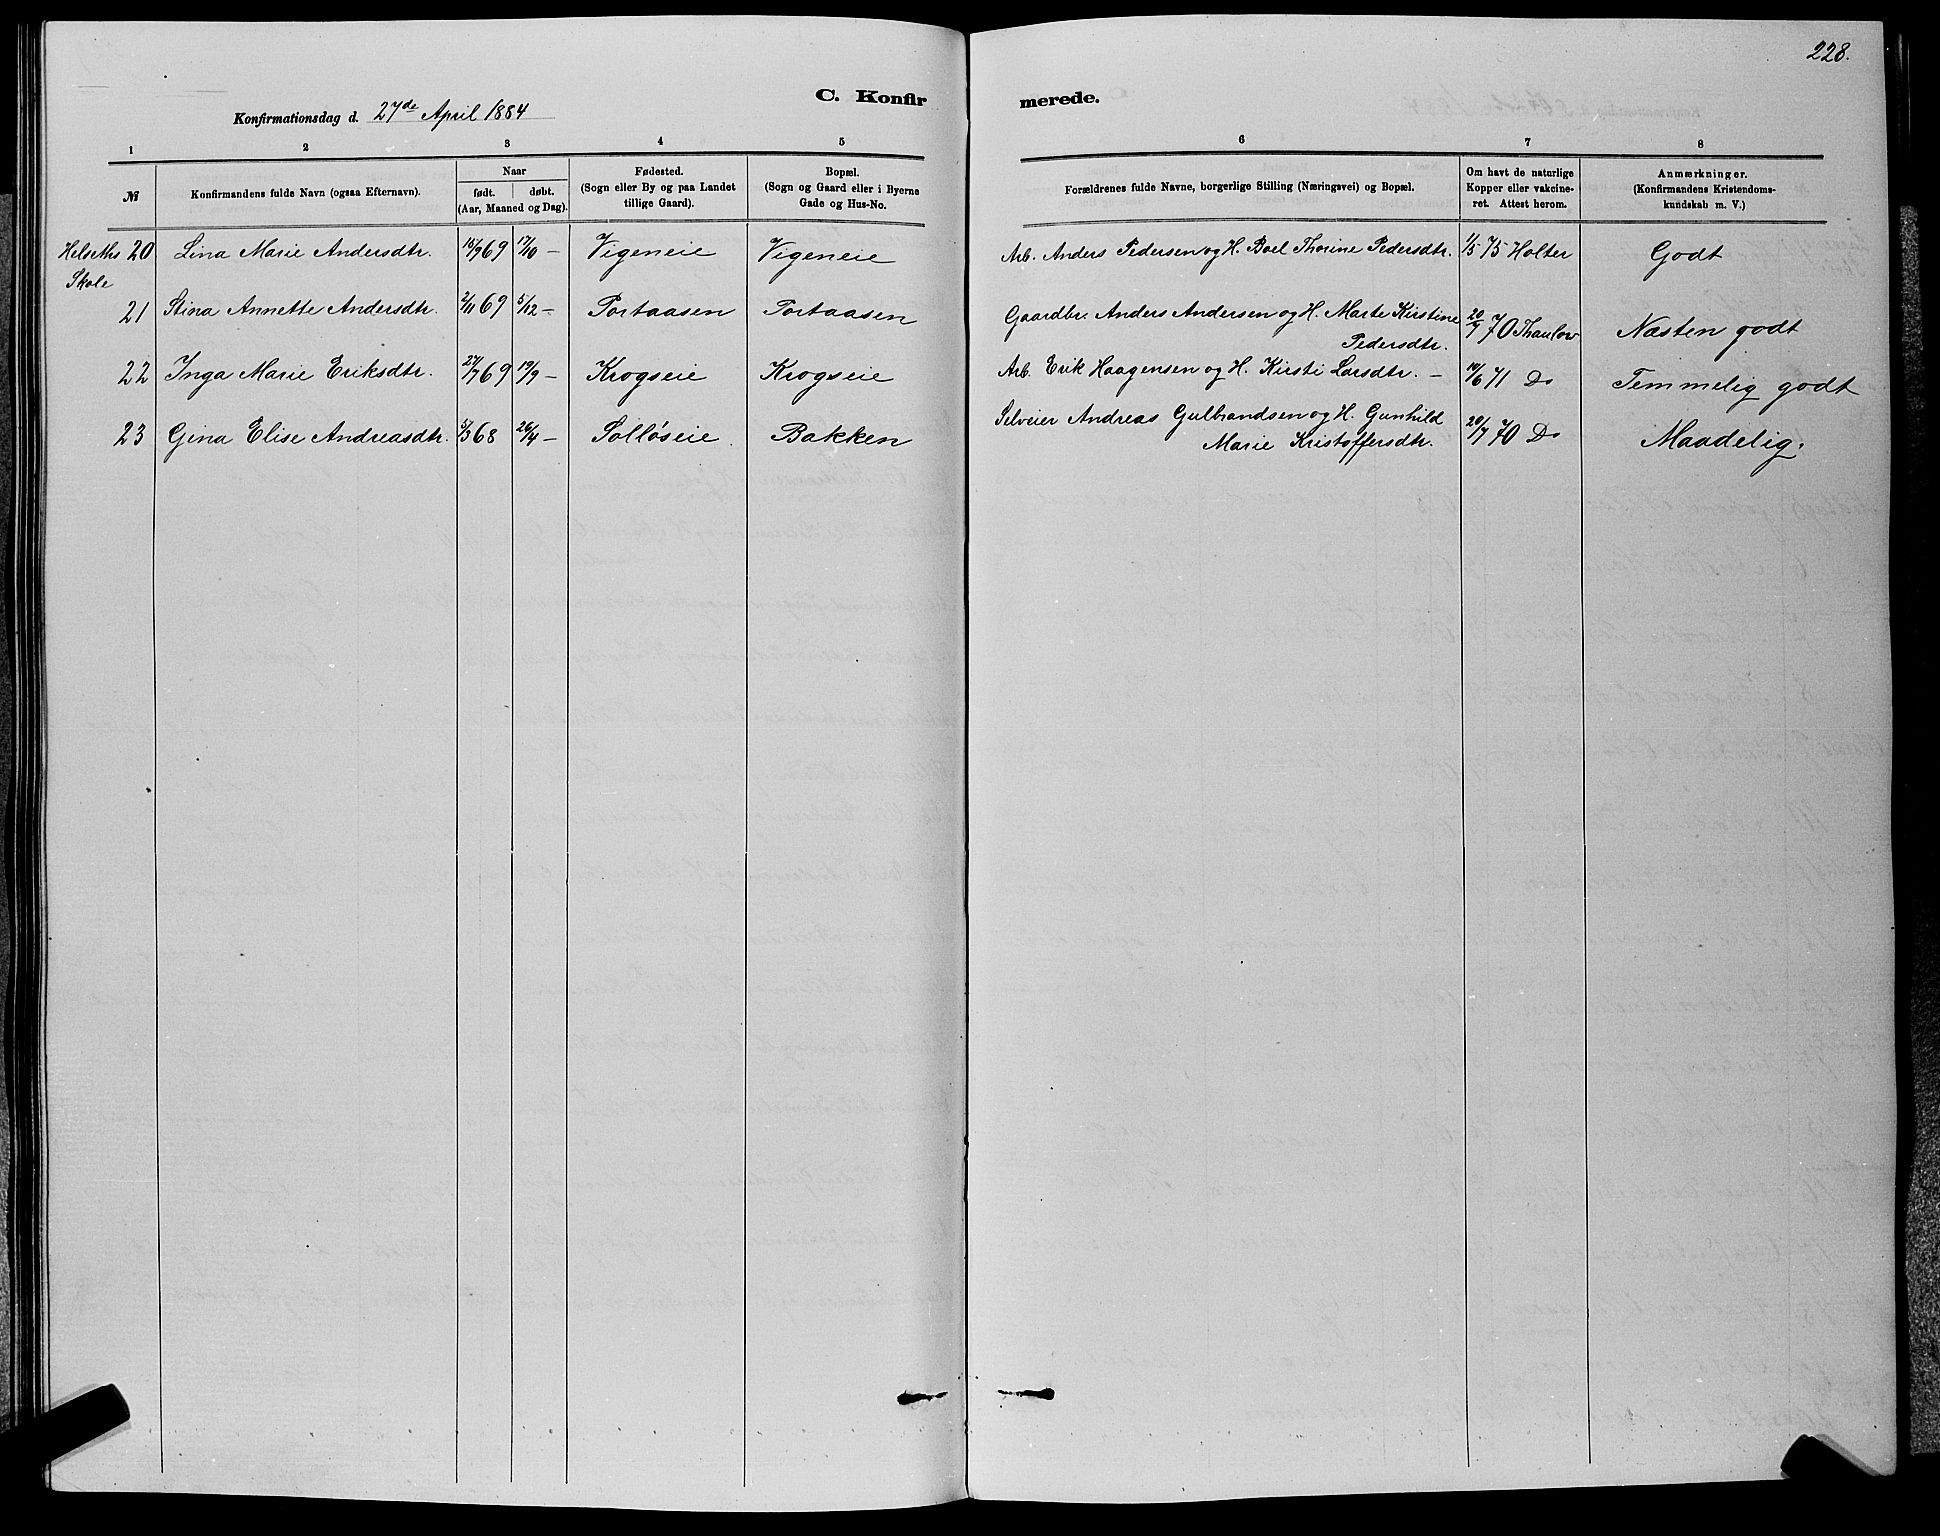 228.
C. Konfirmerede.
Konfirmationsdag d. 27de April 1884
1 2 3 4 5 6 7 8
№ Konfirmandens fulde Navn (ogsaa Efternavn).
Naar født. døbt. (Aar, Maaned og Dag).
Fødested. (Sogn eller By og paa Landet tillige Gaard).
Bopæl. (Sogn og Gaard eller i Byerne Gade og Hus-No.
Forældrenes fulde Navne, borgerlige Stilling (Næringsvei) og Bopæl.
Om havt de naturlige Kopper eller vakcineret. Attest herom.
Anmærkninger. (Konfirmandens Kristendomskundskab m. V.)
Helseths Skole 20 Lina Marie Andersdtr. 18/9 69 17/10 — Vigeneie Vigeneie Arb. Anders Pedersen og H. Boel Thorine Pedersdtr. 1/5 75 Holter Godt
21 Stina Annette Andersdtr. 2/11 69 5/12 — Tortaasen Tortaasen Gaardbr. Anders Andersen og H. Marte Kirstine Pedersdtr. 20/7 70 Thaulow Næsten godt
22 Inga Marie Eriksdtr. 27/7 69 19/9 — Krogseie Krogseie Arb. Erik Haagensen og H. Kirsti Larsdtr. — 14/6 71 Do Temmelig godt
23 Gina Elise Andreasdtr. 5/3 68 26/4 — Solløseie Bakken Selveier Andreas Gulbrandsen og H. Gunhild Marie Kristoffersdtr. 20/7 70 Do Maadelig.